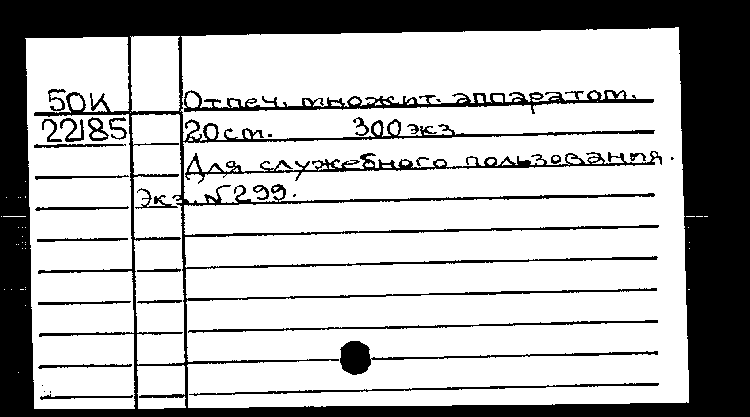 50К Отпеч. множит. аппаратом.
22185 20 cm. 300 экз
Для служебного пользования.
Экз. №299.